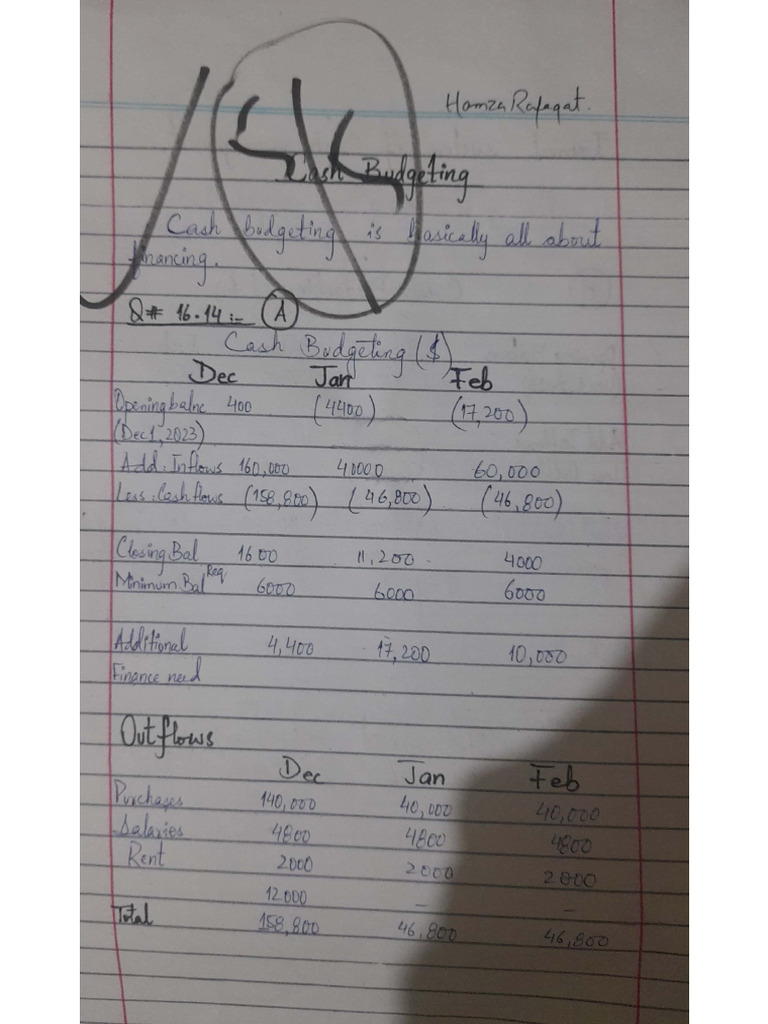 Hamza Rafaqat.
Cash Budgeting
Cash budgeting is basically all about
financing.
Q# 16.14 :- A
Cash Budgeting ($)
Dec Jan Feb
Opening balnc 400 (4400) (17,200)
(Dec1, 2023)
Add. Inflows 160,000 40000 60,000
Less. Cash flows (158,800) (46,800) (46,800)
Closing Bal 1600 11,200 4000
Minimum. Bal Req 6000 6000 6000
Additional 4,400 17,200 10,000
Finance need
Outflows
Dec Jan Feb
Purchases 140,000 40,000 40,000
Salaries 4800 4800 4800
Rent 2000 2000 2000
12000 - -
Total 158,800 46,800 46,800